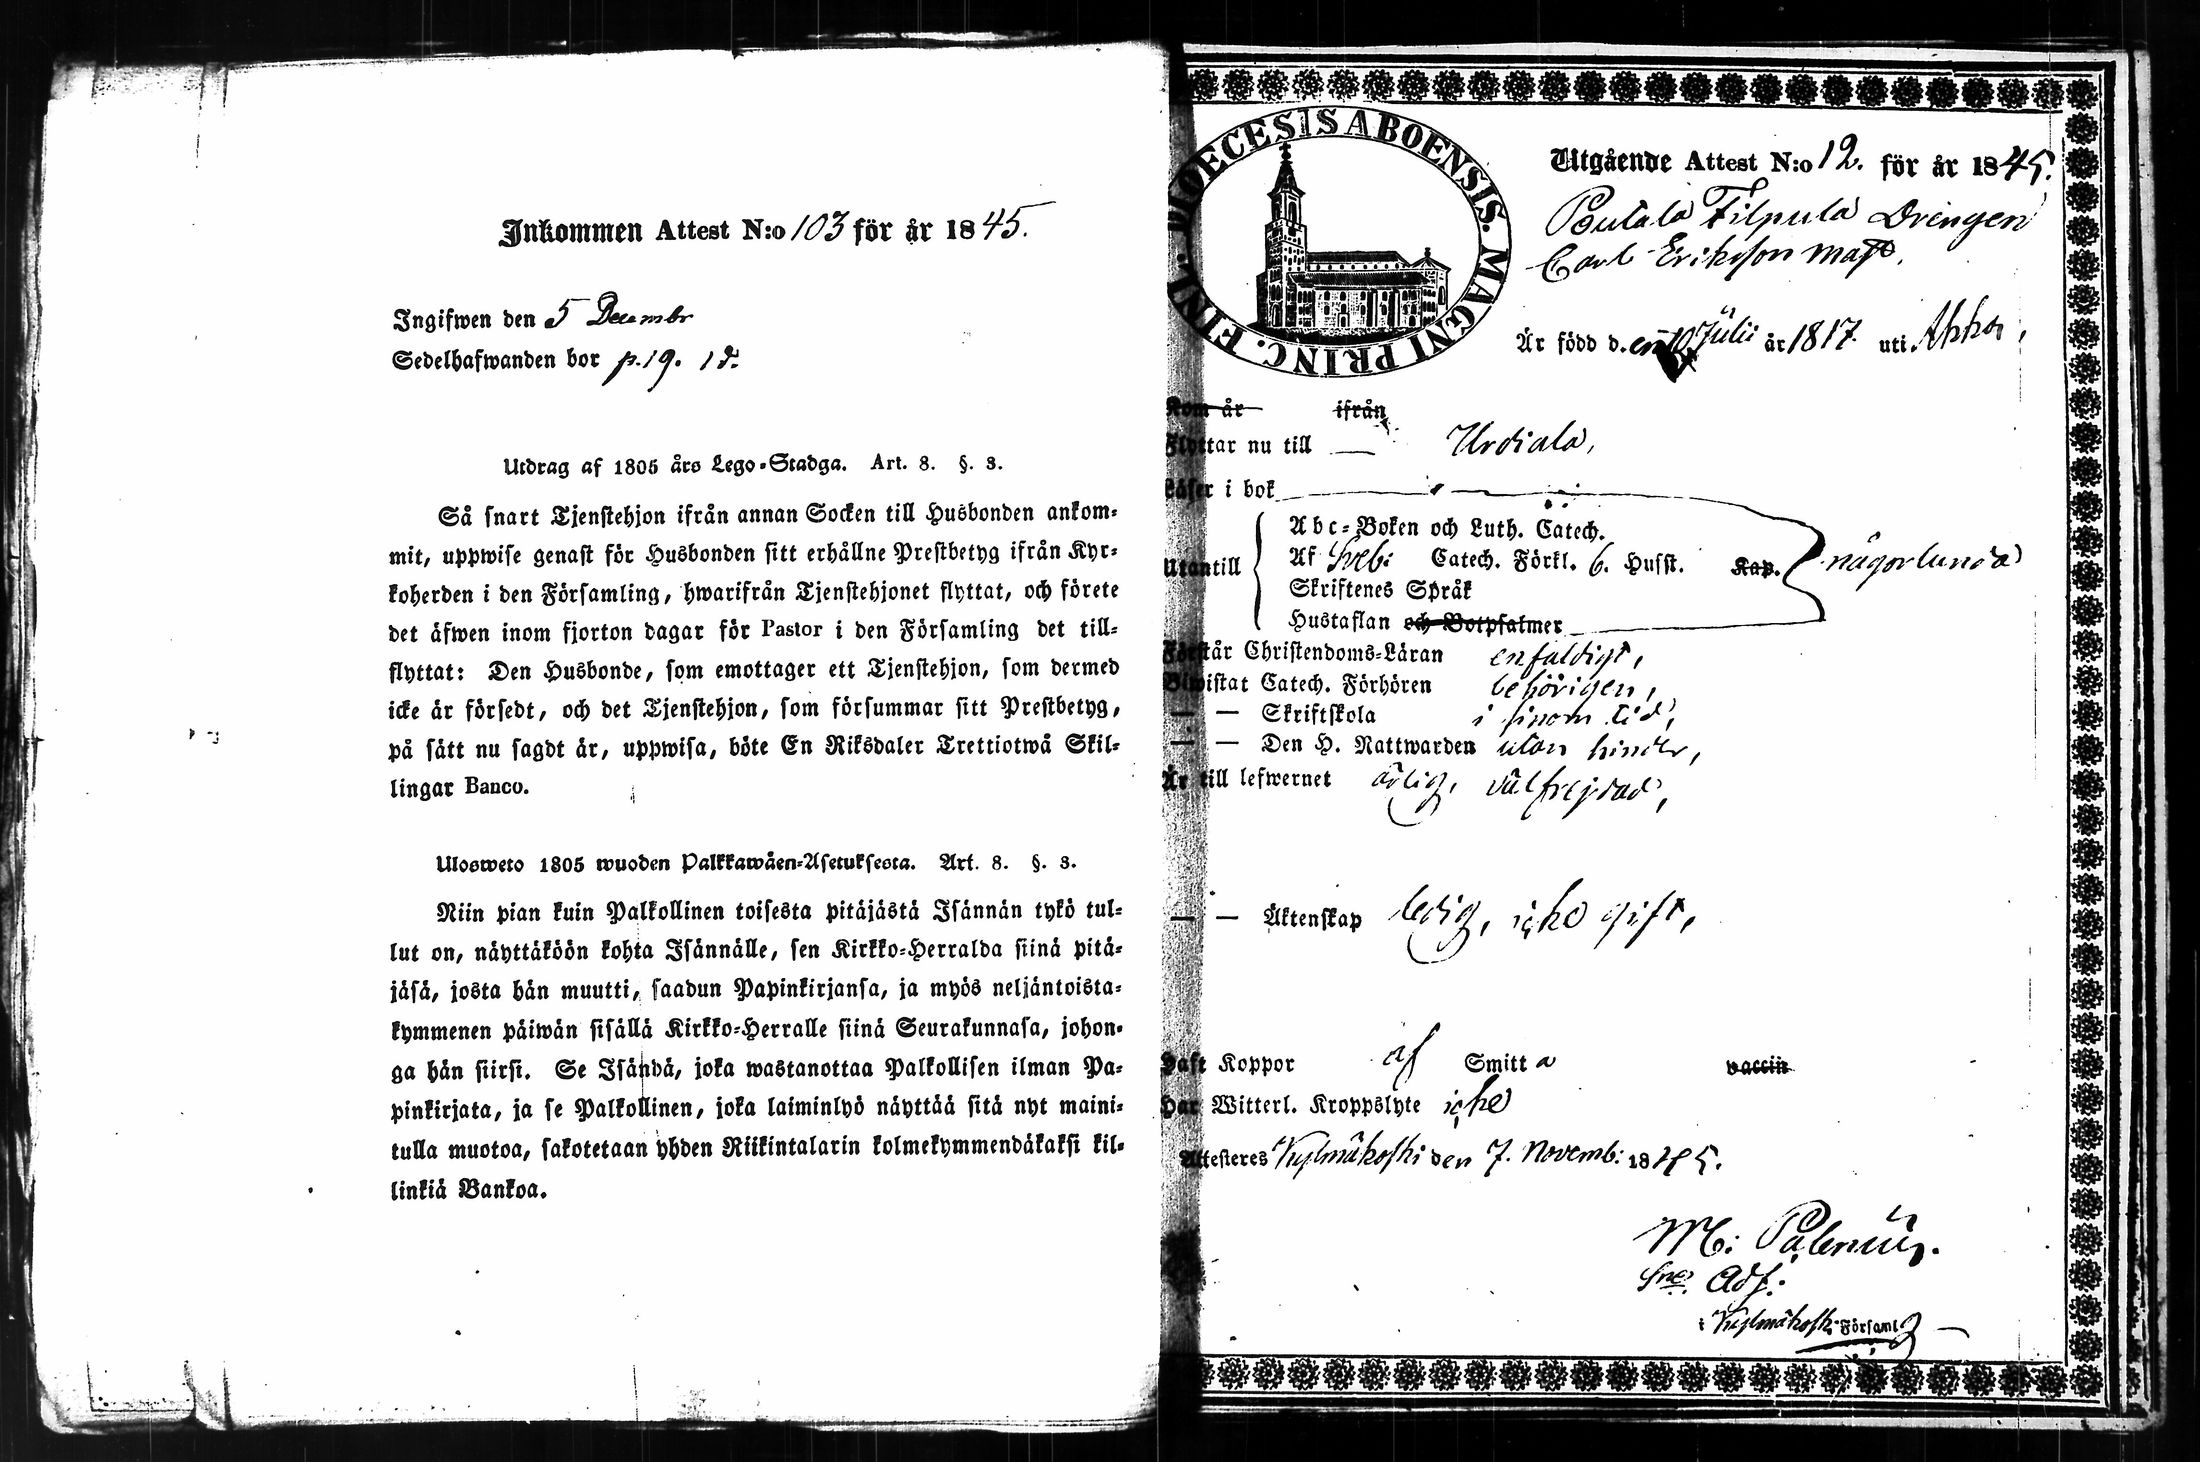 Inkommen Attest N:o 103 för år 1845.
Ingifwen den 5 Decembr
Sedelhafwanden bor p. 19. 1 d.
Utdrag af 1805 års Lego-Stadga. Art. 8. §. 3.
Så snart Tjenstehjon ifrån annan Socken till Husbonden ankom-
mit, uppwise genast för Husbonden sitt erhållne Prestbetyg ifrån Kyr-
koherden i den Församling, hwarifrån Tjenstehjonet flyttat, och förete
det äfwen inom fjorton dagar för Pastor i den Församling det till-
flyttat: Den Husbonde, som emottager ett Tjenstehjon, som dermed
icke är försedt, och det Tjenstehjon, som försummar sitt Prestbetyg,
på sätt nu sagdt är, uppwisa, böte En Riksdaler Trettiotwå Skil-
lingar Banco.
Ulosweto 1805 wuoden Palkkawäen-Asetuksesta. Art. 8. §. 3.
Niin pian kuin Palkollinen toisesta pitäjästä Isännän tykö tul-
lut on, näyttäköön kohta Isännälle, sen Kirkko-Herralda siinä pitä-
jäsä, josta hän muutti, saadun Papinkirjansa, ja myös neljäntoista-
kymmenen päiwän sisällä Kirkko-Herralle siinä Seurakunnasa, johon-
ga hän siirsi. Se Isändä, joka wastanottaa Palkollisen ilman Pa-
pinkirjata, ja se Palkollinen, joka laiminlyö näyttää sitä nyt maini-
tulla muotoa, sakotetaan yhden Riikintalarin kolmekymmendäkaksi kil-
linkiä Bankoa.
DIOECESIS ABOENSIS. MAGNI PRINC. FINL.
Utgående Attest N:o 12. för år 1845.
Pentala Filpula Drengen
Carl Eriksson Matts.
Är född d.en 10 Julii år 1817. uti Akka,
Kom år ifrån
Flyttar nu till — Urdiala,
Läser i bok
Utantill
Abc-Boken och Luth. Catech.
Af Sveb: Catech. Förkl. 6. Husst. Kap. någorlunda
Skriftenes Språk
Hustaflan och Botpsalmer
Förstår Christendoms-Läran enfaldigt,
Biwistat Catech. Förhören behörigen,
— — Skriftskola i sinom tid,
— — Den H. Nattwarden utan hinder,
Är till lefwernet ärlig, välfrejdad,
— — Äktenskap ledig, icke gift,
Haft Koppor af Smitta vaccin
Har Witterl. Kroppslyte icke
Attesteres Kylmäkoski den 7. Novemb: 1845.
M: Palenius.
Adj:
i Kylmäkoski Församl